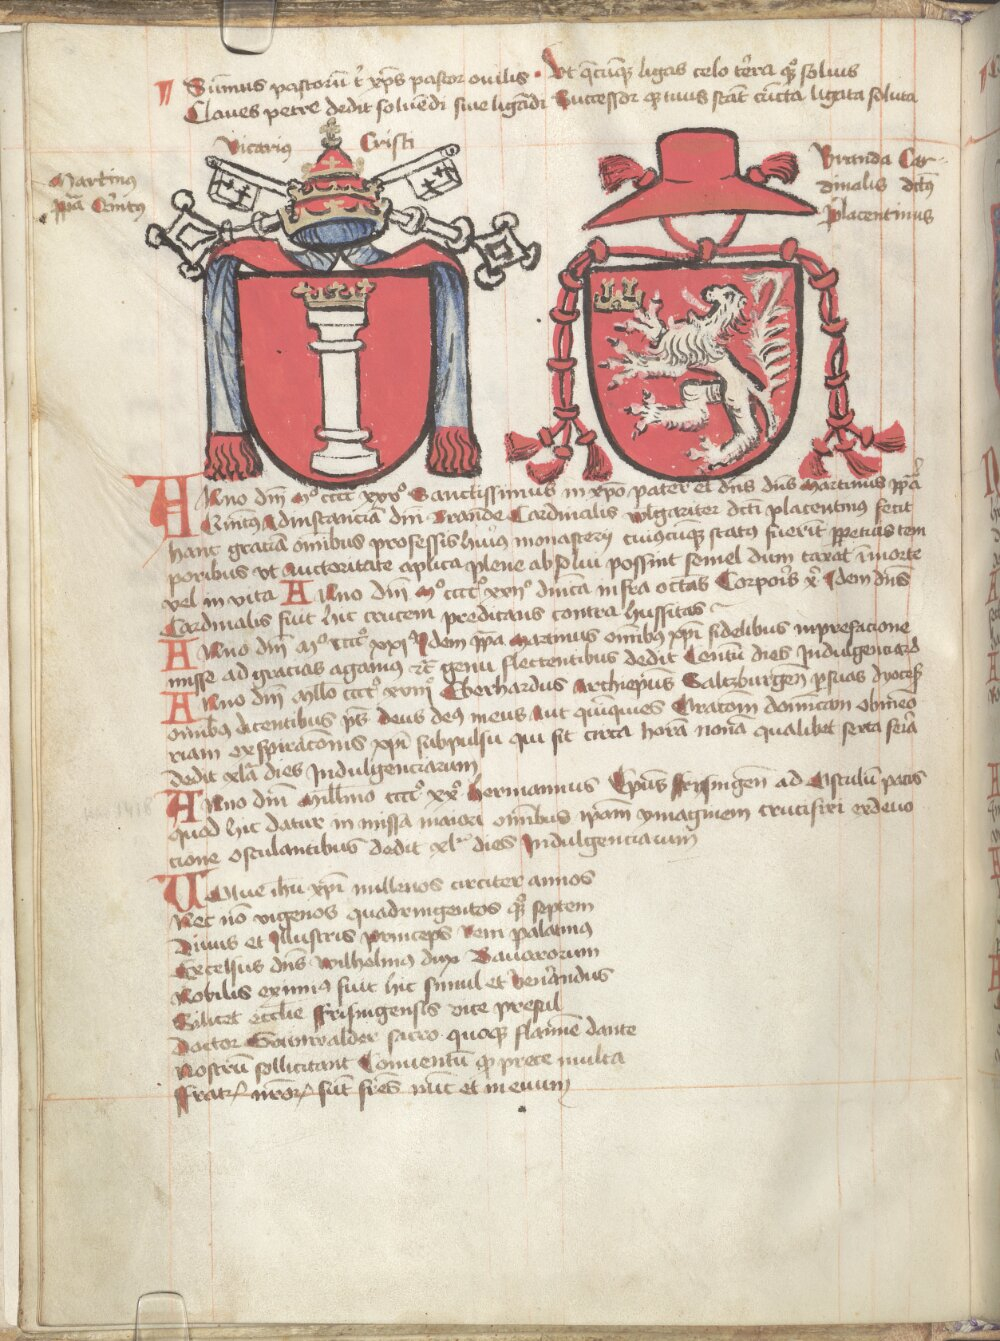 Summus pastorū t̄ xp̄s pastor ovilis · Ut q̄cūq̄ ligas celo t̄ra q̄ꝫ solvis
Claves petre dedit solvēdi sive ligādi Successor q̄ tuus stāt cūcta ligata soluta
Vicarius Cristi
Martinus
pp̄a Qu̅ntus
Branda Car-
dinalis dc̄us
placentinus
Anno dn̄i Mº cccc xxvº Sanctissimus in xp̄o pater et dn̄s dn̄s Martinus pp̄a
Quintus ad instanciā dn̄i Brande Cardinalis wlgariter dc̄ti placentinus fecit
hanc grac̄iā om̄ibus professis huius monasterij cuiuscūq̄ status fuerit p̄petuis tem
poribus ut auctoritate ap̄lica plene absolvi possint semel dum taxat ī morte
vel in vita Anno dn̄i Mº ccccº xxijº dn̄ica infra octās Corporis x̄ Idem dn̄s
Cardinalis fuit hic crucem predicans contra hussitas
Anno dn̄i Mº ccccº xxj Idem pp̄a Martinus om̄ibus xp̄i fidelibus in prefacione
misse ad gracias agamus ⁊c̄ genu flectentibus dedit Centū dies Indulgenciarū
Anno dn̄i Mllo ccccº xviijº Eberhardus Archiep̄us Saltzburgen̄ p̄ suas dyoces̄
om̄ibꝫ dicentibus ps̄ deus deus meus Aut quīquies Orac̄om dominicam ob memo
riam exspirac̄onis xp̄i sub pulsu qui fit circa horā nonā qualibet sexta feria
dedit xlᵃ dies Indulgenciarum
Anno dn̄i Mill̄mo ccccº xxº hermannus Ep̄us frisingen̄ ad Osculū pacis
quod hic datur in missa maiori om̄ibus ip̄am ymaginem crucifixi ex devo
cione osculantibus dedit xlᵃ dies Indulgenciarum
Volve ih̄u xp̄i millenos circiter annos
Nec nō vigenos quadringentos q̄ꝫ septem
Divus et Illustris princeps Reni palatinus
Excelsus dn̄s Wilhelmus dux Bavarorum
Nobilis eximius fuit hic simul et Ven̄andus
Scilicet eccl̄ie Frisingensis vice presul
Doctor Grunwalder sacro quoqꝫ flamīe dante
Nostrū sollicitant Conventū q̄ prece multa
Fratrꝫ nr̄orꝫ sūt fr̄es nūc et in evum